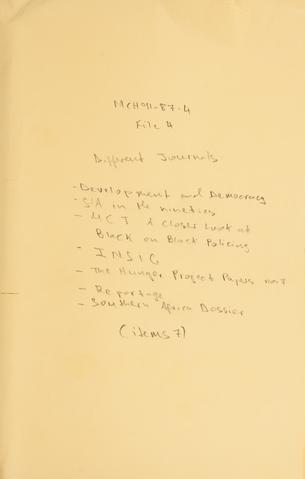 MCH011-87-4
File 4
Different Journals
- Development and Democracy
- S/A in the nineties
- UCT A Closer Look at
Black on Black Policing
- INSIG
- The Hunger Project Papers no 7
- Reportage
- Southern Africa Dossier
(items 7)